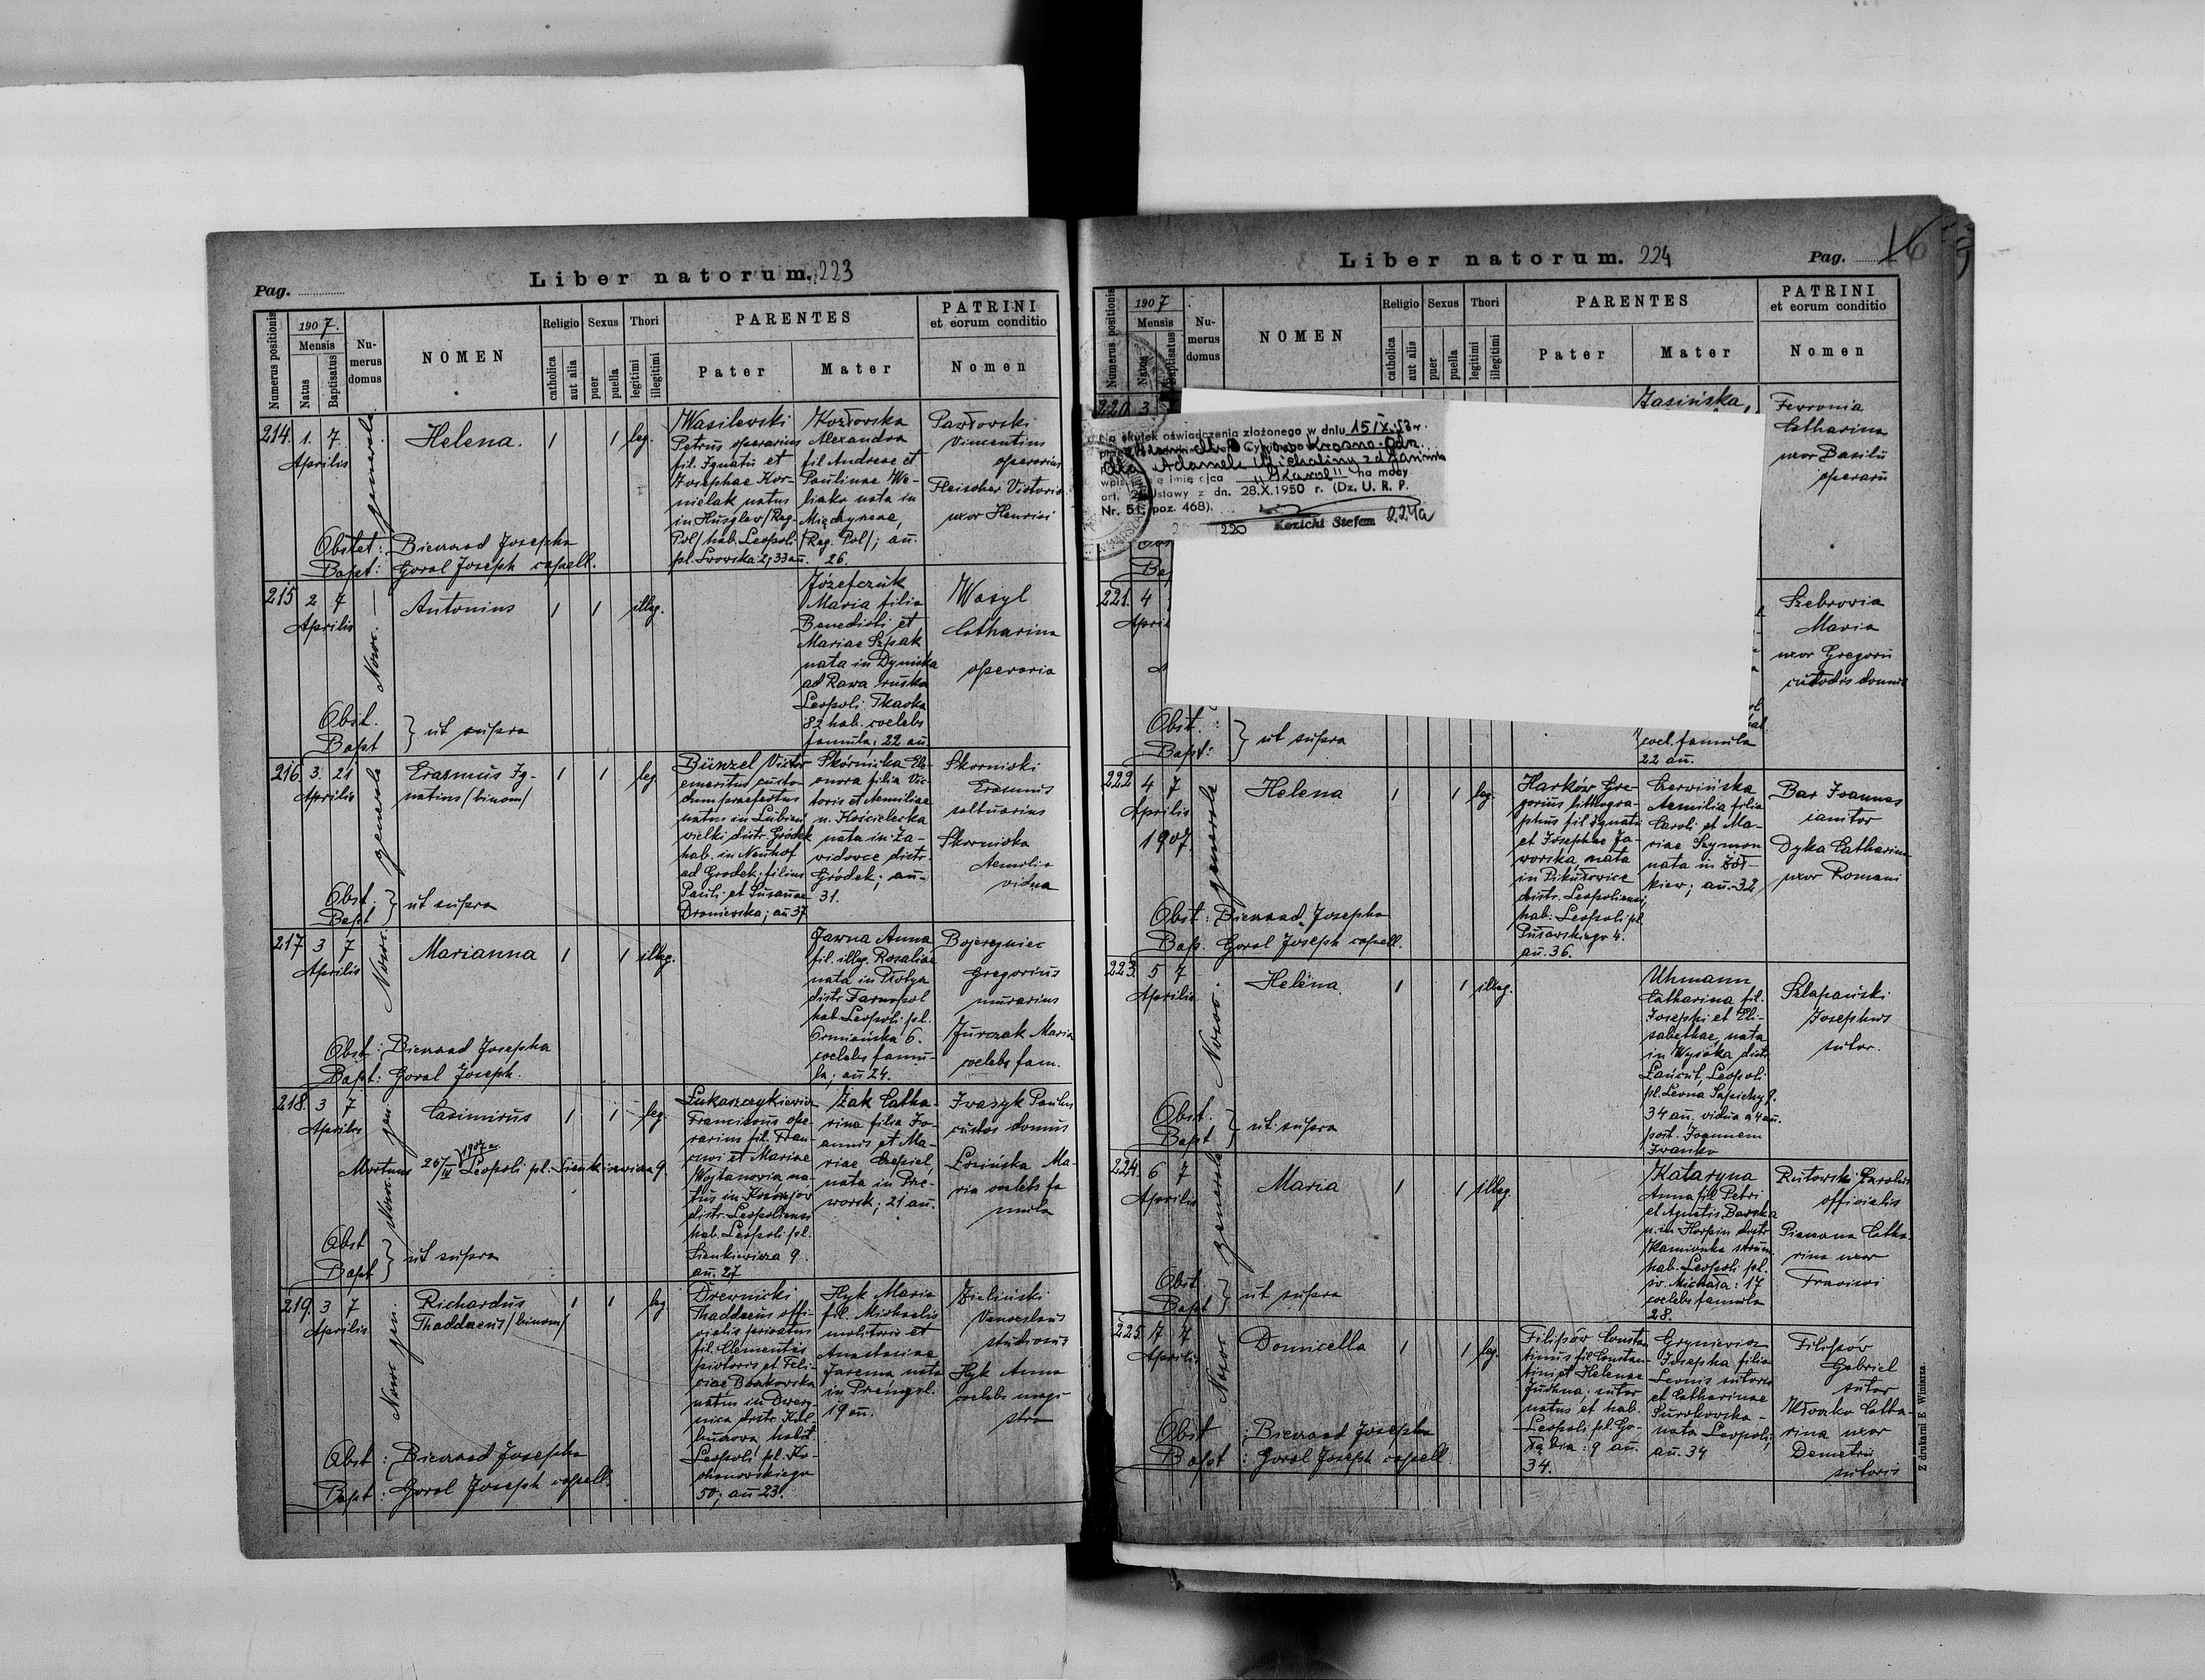 Pag.
Liber natorum. 223
Numerus positionis
1907.
Mensis
Natus
Baptisatus
Numerus domus
NOMEN
Religio
catholica
aut alia
Sexus
puer
puella
Thori
legitimi
illegitimi
PARENTES
Pater
Mater
PATRINI
et eorum conditio
Nomen
214. 1. 7. Aprilis
Helena.
1 1 leg.
Wasilewski
Petrus operarius
fil. Ignatii et
Josephae Kor-
nielak natus
in
Pol/ hab. Leopoli
pl. Lwowska 2; 33 an.
Kozłowska
Alexandra
fil Andreae et
Paulinae We-
liako nata in
/Reg. Pol/; an.
26.
Pawłowski
Vincentius
operarius
Fleischer Victoria
uxor Henrici
Obstet: Bienasd Josepha
Bapt: Goral Joseph capell.
215 2 7 Aprilis
Antonius
1 1 illeg.
Józefczuk
Maria filia
Benedicti et
Mariae Szpak
nata in Dyniska
ad Rawa ruska
Leopoli Tkacka
82 hab. coelebs
famula; 22 an.
Wasyl
Catharina
operaria
Obst.
Bapt } ut supra
216 3. 21 Aprilis
Erasmus Ig-
natius /binom/
1 1 leg
Bünzel Victor
emeritus custo-
dum praefectus
natus in Lubień
wielki distr. Gródek
hab. in Neuhof
ad Grodek; filius
Pauli et Susannae
Droniewska; an 37
Skórnicka Ele-
onora filia Vic-
toris et Aemiliae
n. Kościelecka
nata in Za-
widowce distr.
Gródek; an-
31.
Skornicki
Erasmus
saltuarius
Skornicka
Aemilia
vidua
Obst.
Bapt } ut supra
217 3 7 Aprilis
Marianna
1 1 illeg.
Jawna Anna
fil. illeg. Rosaliae
nata in Płotycz
distr. Tarnopol
hab. Leopoli pl.
Ormiańska 6.
coelebs famu-
la; an 24.
Gregorius
murarius
Jurczak Maria
coelebs fam.
Obst: Bienasd Josepha
Bapt: Goral Joseph.
218. 3 7 Aprilis
Casimirus
1 1 leg.
Mortuus 25/IV 1907 Leopoli pl. Sienkiewicza 9.
Łukaszczykiewicz
Franciscus ope-
rarius fil. Fran-
cisci et Mariae
Wojtanowicz na-
tus in
distr. Leopoliensi
hab. Leopoli pl.
Sienkiewicza 9.
an. 27
Żak Catha-
rina filia Jo-
annis et Ma-
riae
nata in Prze-
worsk; 21 an.
Iwasyk Paulus
custos domus
Łozińska Ma-
ria coelebs fa
mula
Obst
Bapt } ut supra
219. 3 7 Aprilis
Richardus
Thaddaeus /binom/
1 1 leg
Drewnicki
Thaddaeus offi-
cialis privatus
fil. Clementis
pictoris et Feli-
ciae Borkowska
natus in
nica distr. Kol-
buszowa habit.
Leopoli pl. Ko-
chanowskiego
50; an 23.
Hyk Maria
fil. Michaelis
molitoris et
Anastasiae
Jarema nata
in Przemysl.
19 an.
Zieliński
Venceslaus
studiosus
Hyk Anna
coelebs magi-
stra
Obst: Bienasd Josepha
Bapt: Goral Joseph capell.
Liber natorum. 224
Pag. 16
Numerus positionis
1907
Mensis
Natus
Baptisatus
Numerus domus
NOMEN
Religio
catholica
aut alis
Sexus
puer
puella
Thori
legitimi
illegitimi
PARENTES
Pater
Mater
PATRINI
et eorum conditio
Nomen
220. 3
Jasińska,
Fevronia
Catharina
uxor Basilii
operarii
Na skutek oświadczenia złożonego w dniu 15/IX.53 r.
Adamek Michaliny z d. Jasińska
imię ojca "Karol" na mocy
art. ustawy z dn. 28.X.1950 r. (Dz. U. R. P.
Nr. 51. poz. 468).
220 Kozicki Stefan 224a
221. 4
Szebrovia
Maria
uxor Gregorii
custodis domus
coel. famula
22 an.
Obst.
Bapt: } ut supra
222 4 7 Aprilis 1907.
Helena
1 1 leg.
Harków Gre-
gorius lithogra-
phus fil Ignatii
et Josephae Ja-
worska, nata
in Pikułowice
distr. Leopoliensi,
hab. Leopoli pl.
Pułaskiego 4.
an. 36.
Czerwińska
Aemilia filia
Caroli et Ma-
riae Szymon
nata in Żół-
kiew; an. 32
Bar Joannes
ianitor
Dyka Catharina
uxor Romani
Obst: Bienasd Josepha
Bap. Goral Joseph capell.
223. 5 7 Aprilis
Helena
1 1 illeg.
Uhmann
Catharina fil.
Josephi et Eli-
sabethae, nata
in Wysoka distr.
Łańcut, Leopoli
pl. Leona Sapiehy 9.
34 an, vidua a 4 an.
post. Joannem
Iwanko
Szlapański
Josephus
sutor.
Obst.
Bapt } ut supra
224. 6 7 Aprilis
Maria
1 1 illeg.
Kataryna
Anna fil Petri
et Agnetis Barska
n. in Horpin distr
Kamionka strum.
hab. Leopoli pl.
św. Michała: 17
coelebs famula
28.
Rutowski Carolus
officialis
Catha-
rina uxor
Francisci
Obst.
Bapt } ut supra
225. 7 7 Aprilis
Domicella
1 1 leg.
Filipów Constan
tinus fil Constan-
tini et Helenae
sutor
natus et hab.
Leopoli pl. Go-
łębia: 9 an.
34.
Gryniewicz
Josepha filia
Leonis sutoris
et Catharinae
nata Leopoli;
an. 34
Filipów
Gabriel
sutor
Catha-
rina uxor
Demetrii
sutoris
Obst: Bienasd Josepha
Bapt: Goral Joseph capell.
Z drukarni E. Winiarza.